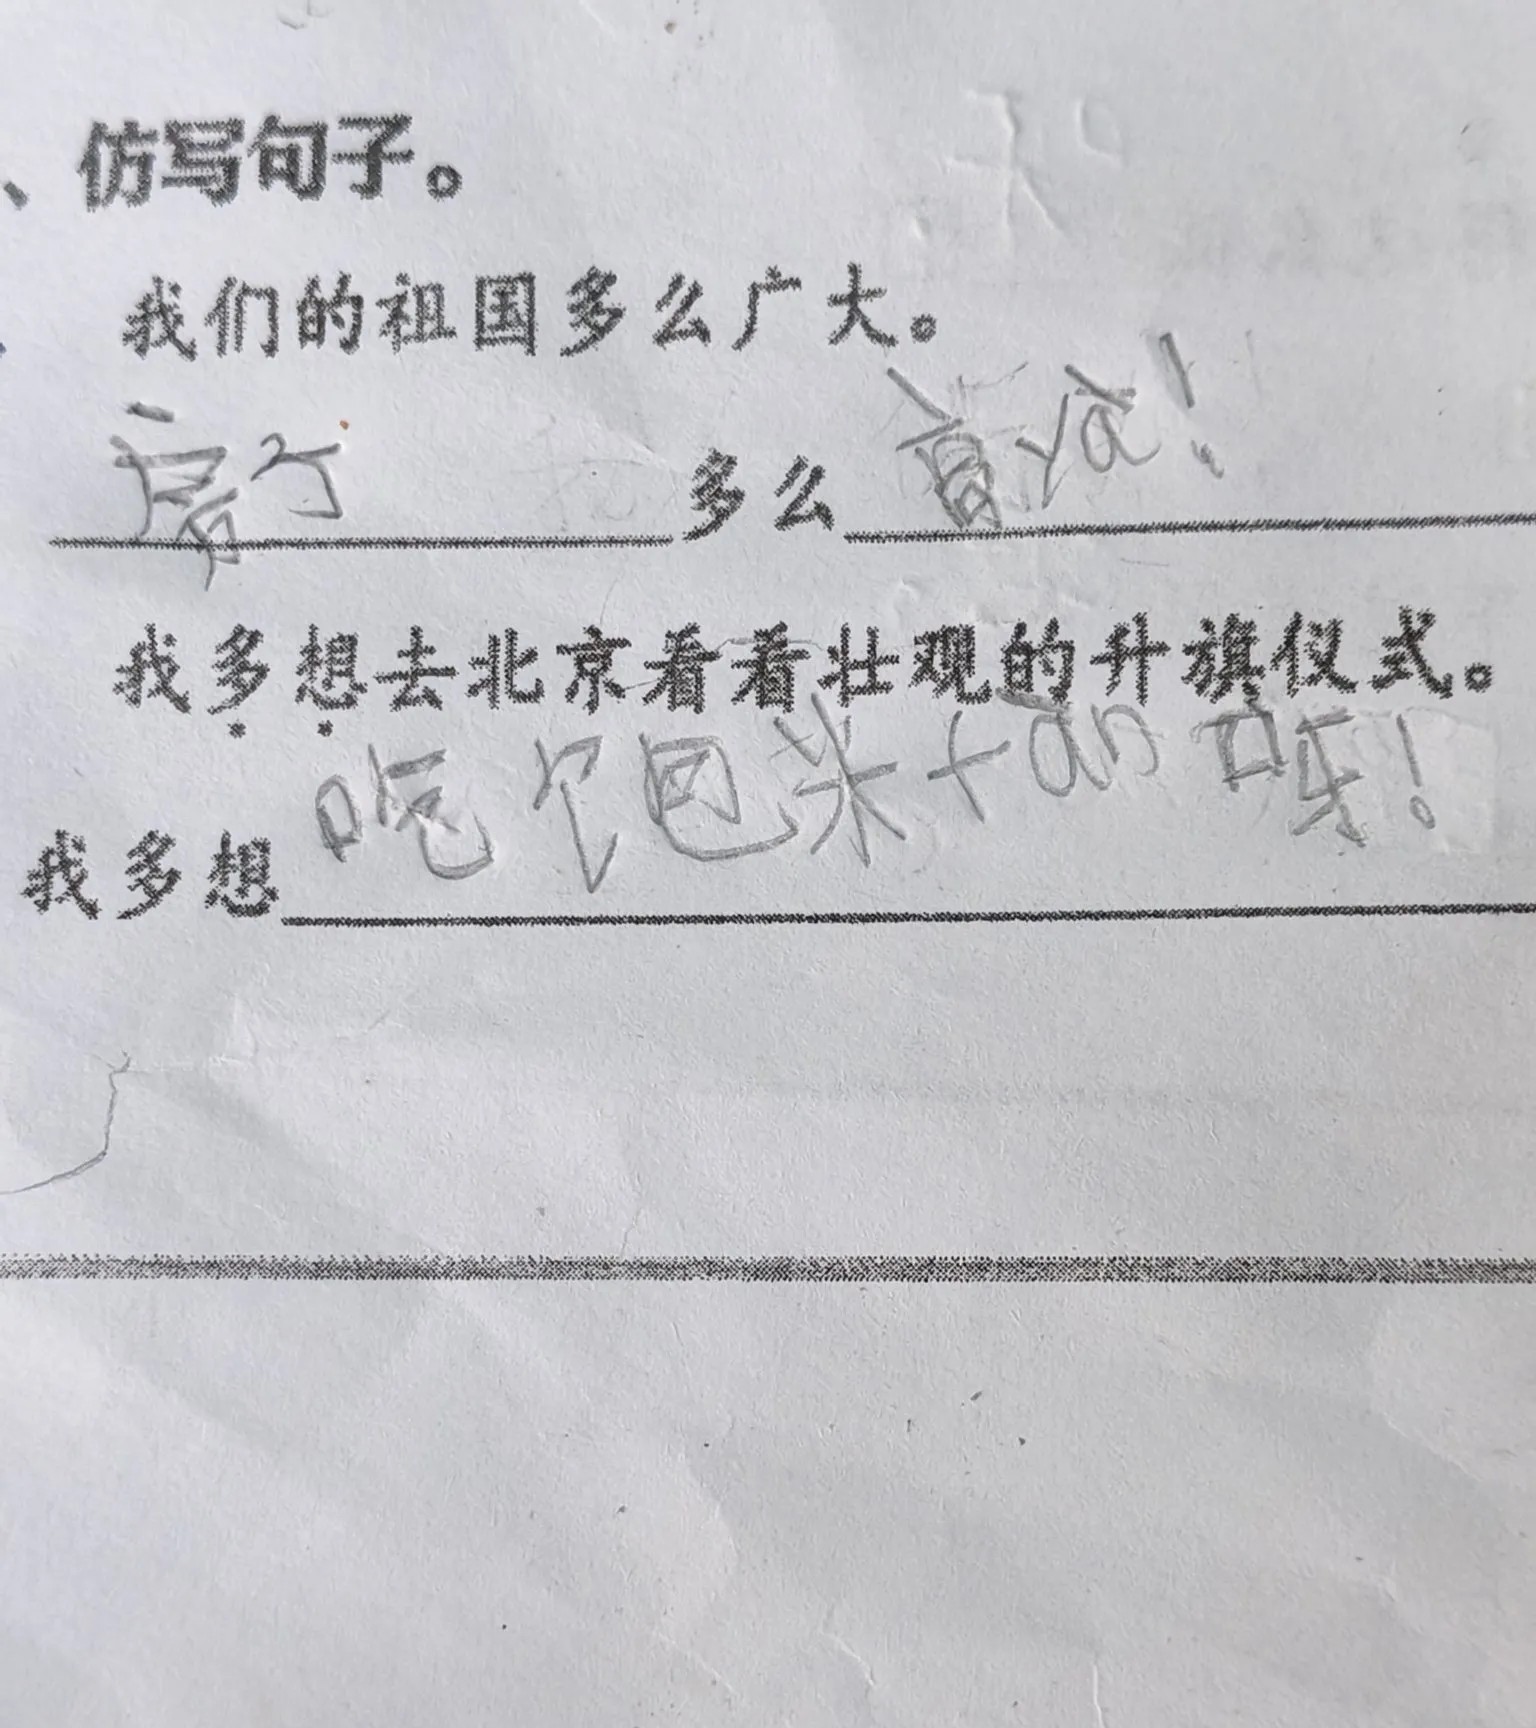 、仿写句子。
我们的祖国多么广大。
房子多么高yā！
我多想去北京看看壮观的升旗仪式。
我多想吃个包米tān呀！